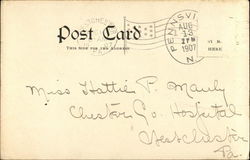 Post Card
THIS SIDE FOR THE ADDRESS
PENNSVI
AUG
13
1907
N
HERE
Miss Hattie P. Mauly
Chester Co. Hospital
Westchester
Pa.